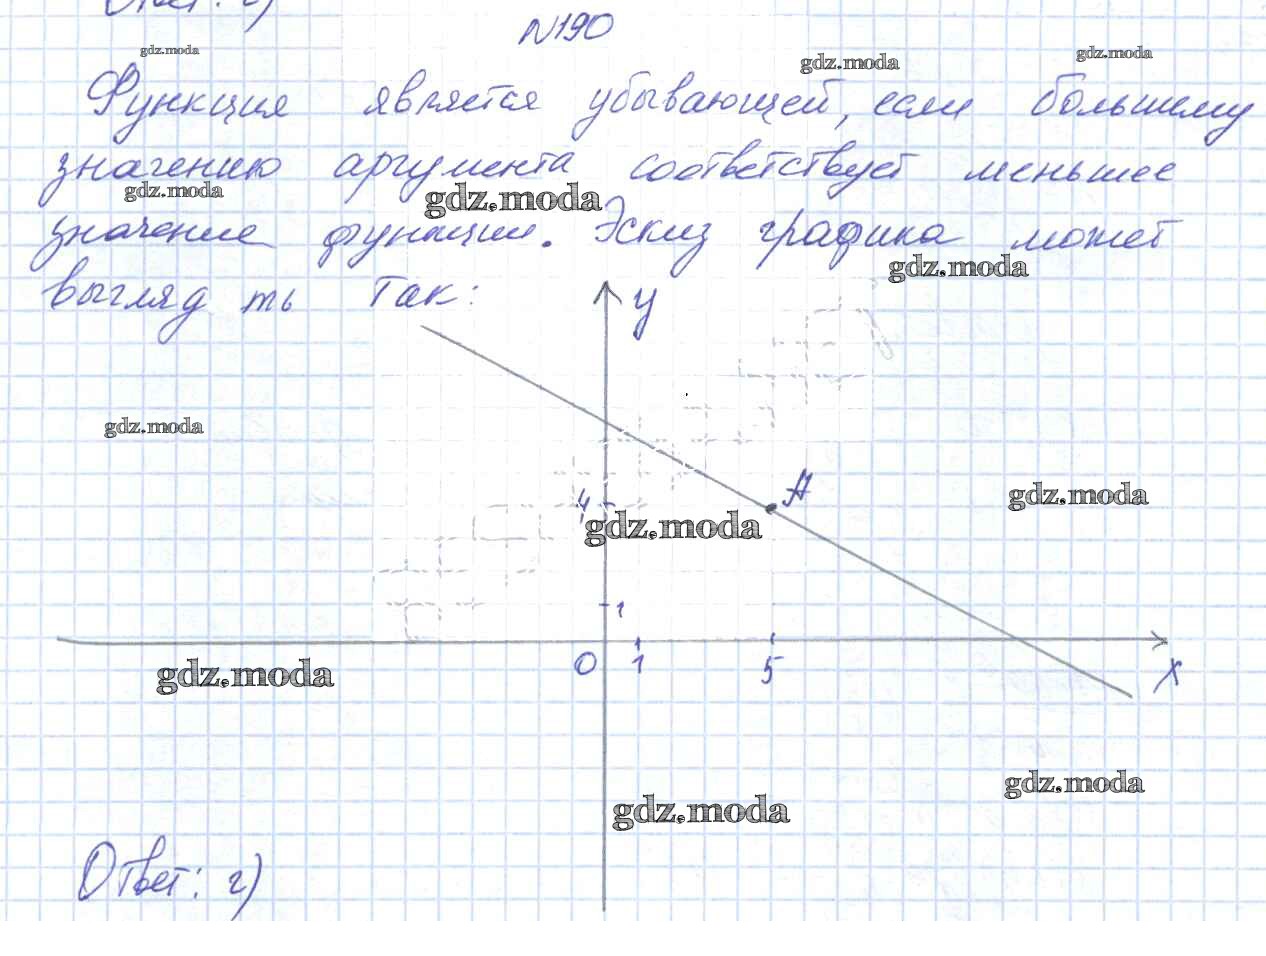 Ответ: г)
N190
Функция является убывающей, если большему
значению аргумента соответствует меньшее
значение функции. Эскиз графика может
выгляд ть так:
y
A
4
1
0 1 5 x
Ответ: г)
gdz.moda
gdz.moda
gdz.moda
gdz.moda
gdz.moda
gdz.moda
gdz.moda
gdz.moda
gdz.moda
gdz.moda
gdz.moda
gdz.moda